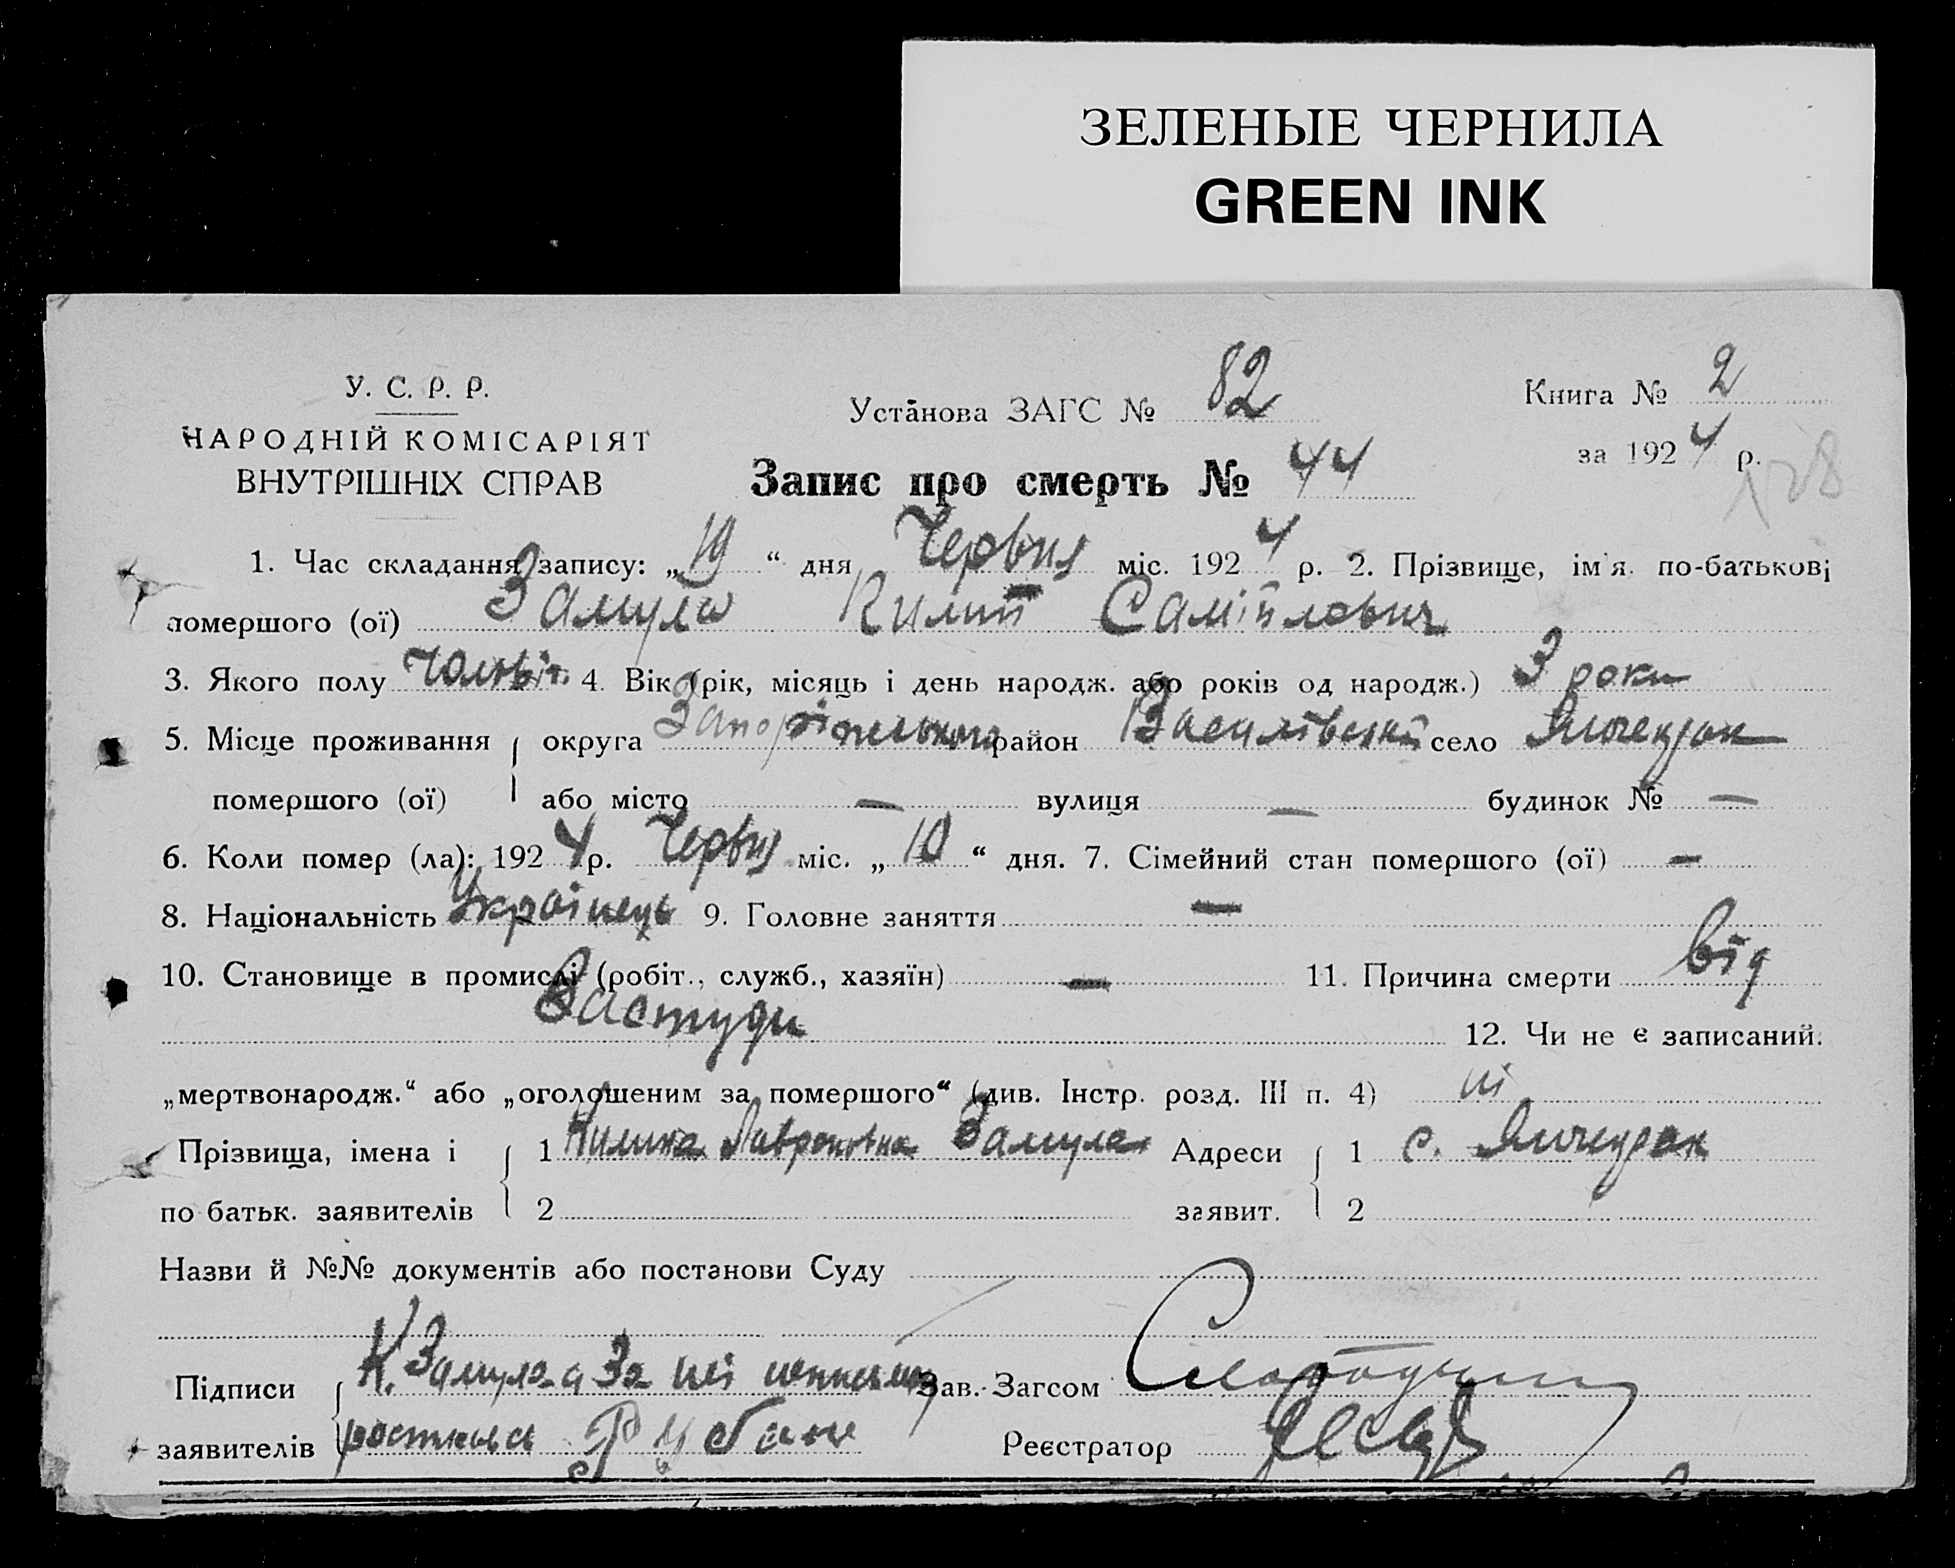 ЗЕЛЕНЫЕ ЧЕРНИЛА
GREEN INK
У. С. Р. Р.
НАРОДНІЙ КОМІСАРІЯТ
ВНУТРІШНІХ СПРАВ
Установа ЗАГС № 82
Книга № 2
за 1924 р.
Запис про смерть № 44
1. Час складання запису: „19“ дня Червня міс. 1924 р. 2. Прізвище, ім'я по-батькові
помершого (ої) Замула Килип Самійлович
3. Якого полу чоловіч. 4. Вік (рік, місяць і день народж. або років од народж.) 3 роки
5. Місце проживання округа Запоріжського район Василівський село Янчекрак
помершого (ої) або місто — вулиця — будинок № —
6. Коли помер (ла): 1924 р. Червня міс. „10“ дня. 7. Сімейний стан помершого (ої) —
8. Національність Українець 9. Головне заняття —
10. Становище в промислі (робіт., служб., хазяїн) — 11. Причина смерти від
Застуди
12. Чи не є записаний:
„мертвонародж.“ або „оголошеним за помершого“ (див. Інстр. розд. III п. 4) ні
Прізвища, імена і 1 Килина Лавронтівна Замула Адреси 1 с. Янчекрак
по батьк. заявителів 2 заявит. 2
Назви й №№ документів або постанови Суду
Підписи К. Замула а За неї неписьм. Зав. Загсом
заявителів Рубан Реєстратор